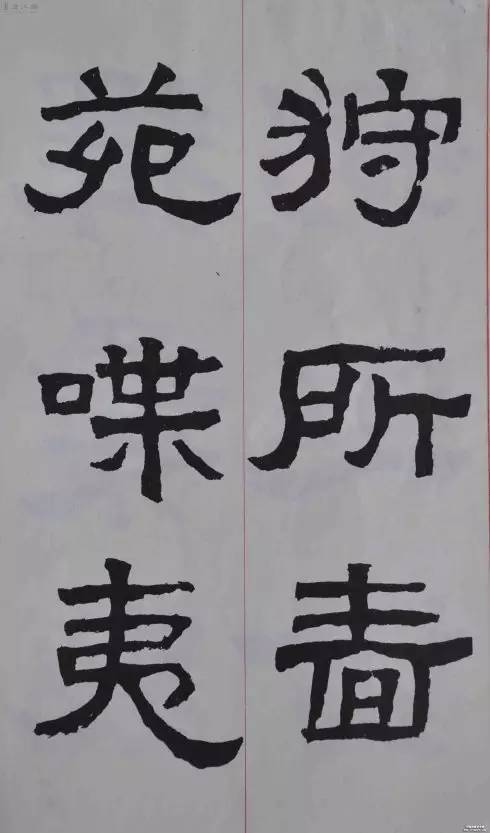 狩所嗇
苑喋夷